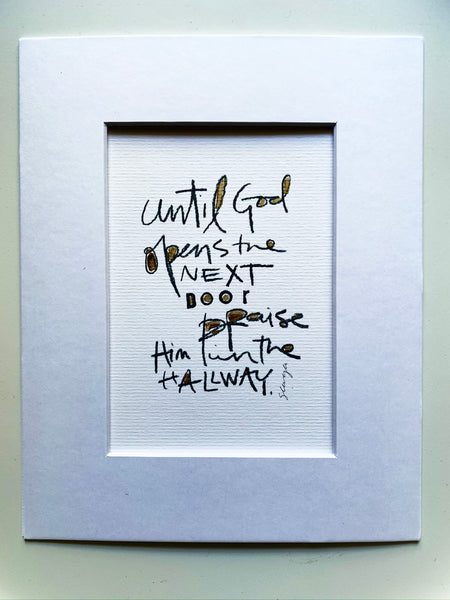 until God
opens the
NEXT
DOOR
praise
Him in the
HALLWAY.